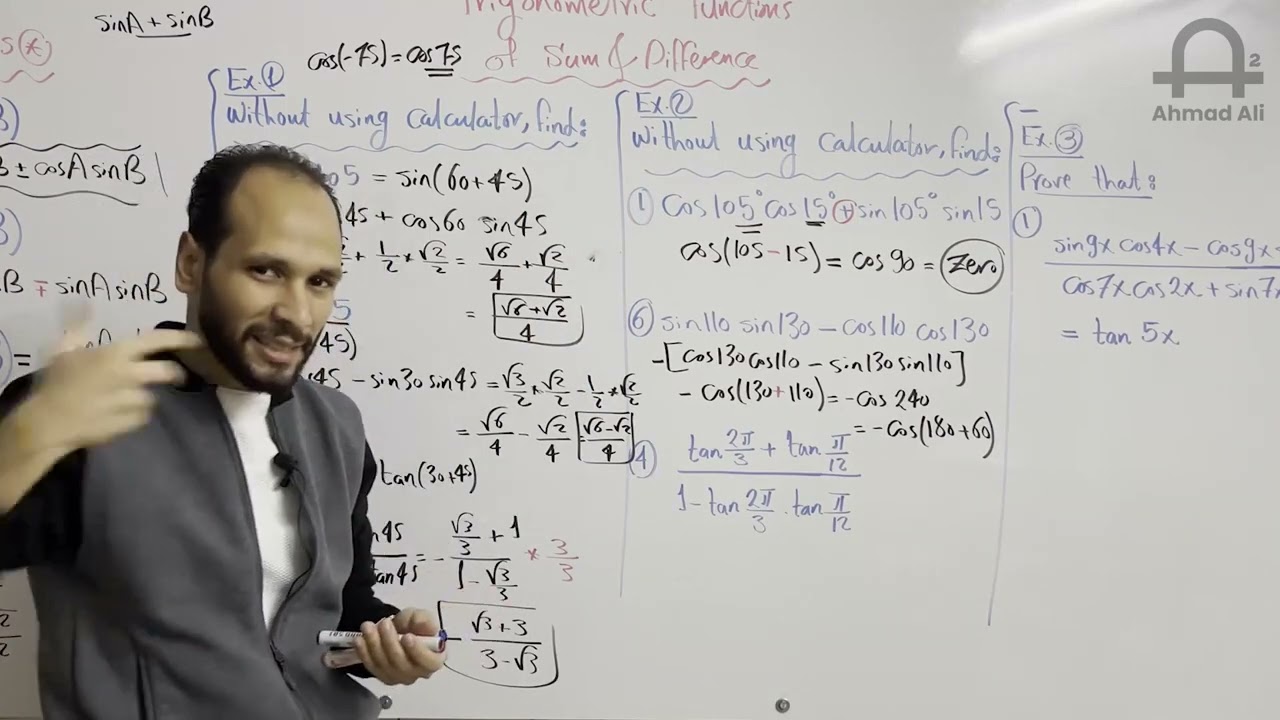 sinA + sinB
Trigonometric functions
of Sum & Difference
cos(-75) = cos75
B ± cosA sinB
B ∓ sinA sinB
Ex.①
Without using calculator, find:
= sin(60+45)
45 + cos60 sin45
+ 1/2 * √2/2 = √6/4 + √2/4
= (√6+√2)/4
45)
45 - sin30 sin45 = √3/2 * √2/2 - 1/2 * √2/2
= √6/4 - √2/4 (√6-√2)/4
tan(30+45)
45
tan45 = - (√3/3 + 1)/(1 - √3/3) * 3/3
- (√3+3)/(3-√3)
Ex.②
Without using Calculator, find:
① Cos105° cos15° + sin105° sin15
cos(105-15) = cos90 = Zero
⑥ sin110 sin130 - cos110 cos130
-[cos130cos110 - sin130sin110]
- cos(130+110) = -cos240
= -cos(180+60)
④ (tan 2π/3 + tan π/12)/(1 - tan 2π/3 . tan π/12)
Ex.③
Prove that:
①
sin9x cos4x - cos9x
cos7x cos2x + sin7x
= tan 5x
A²
Ahmad Ali